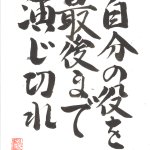 自分の役を
最後まで
演じ切れ